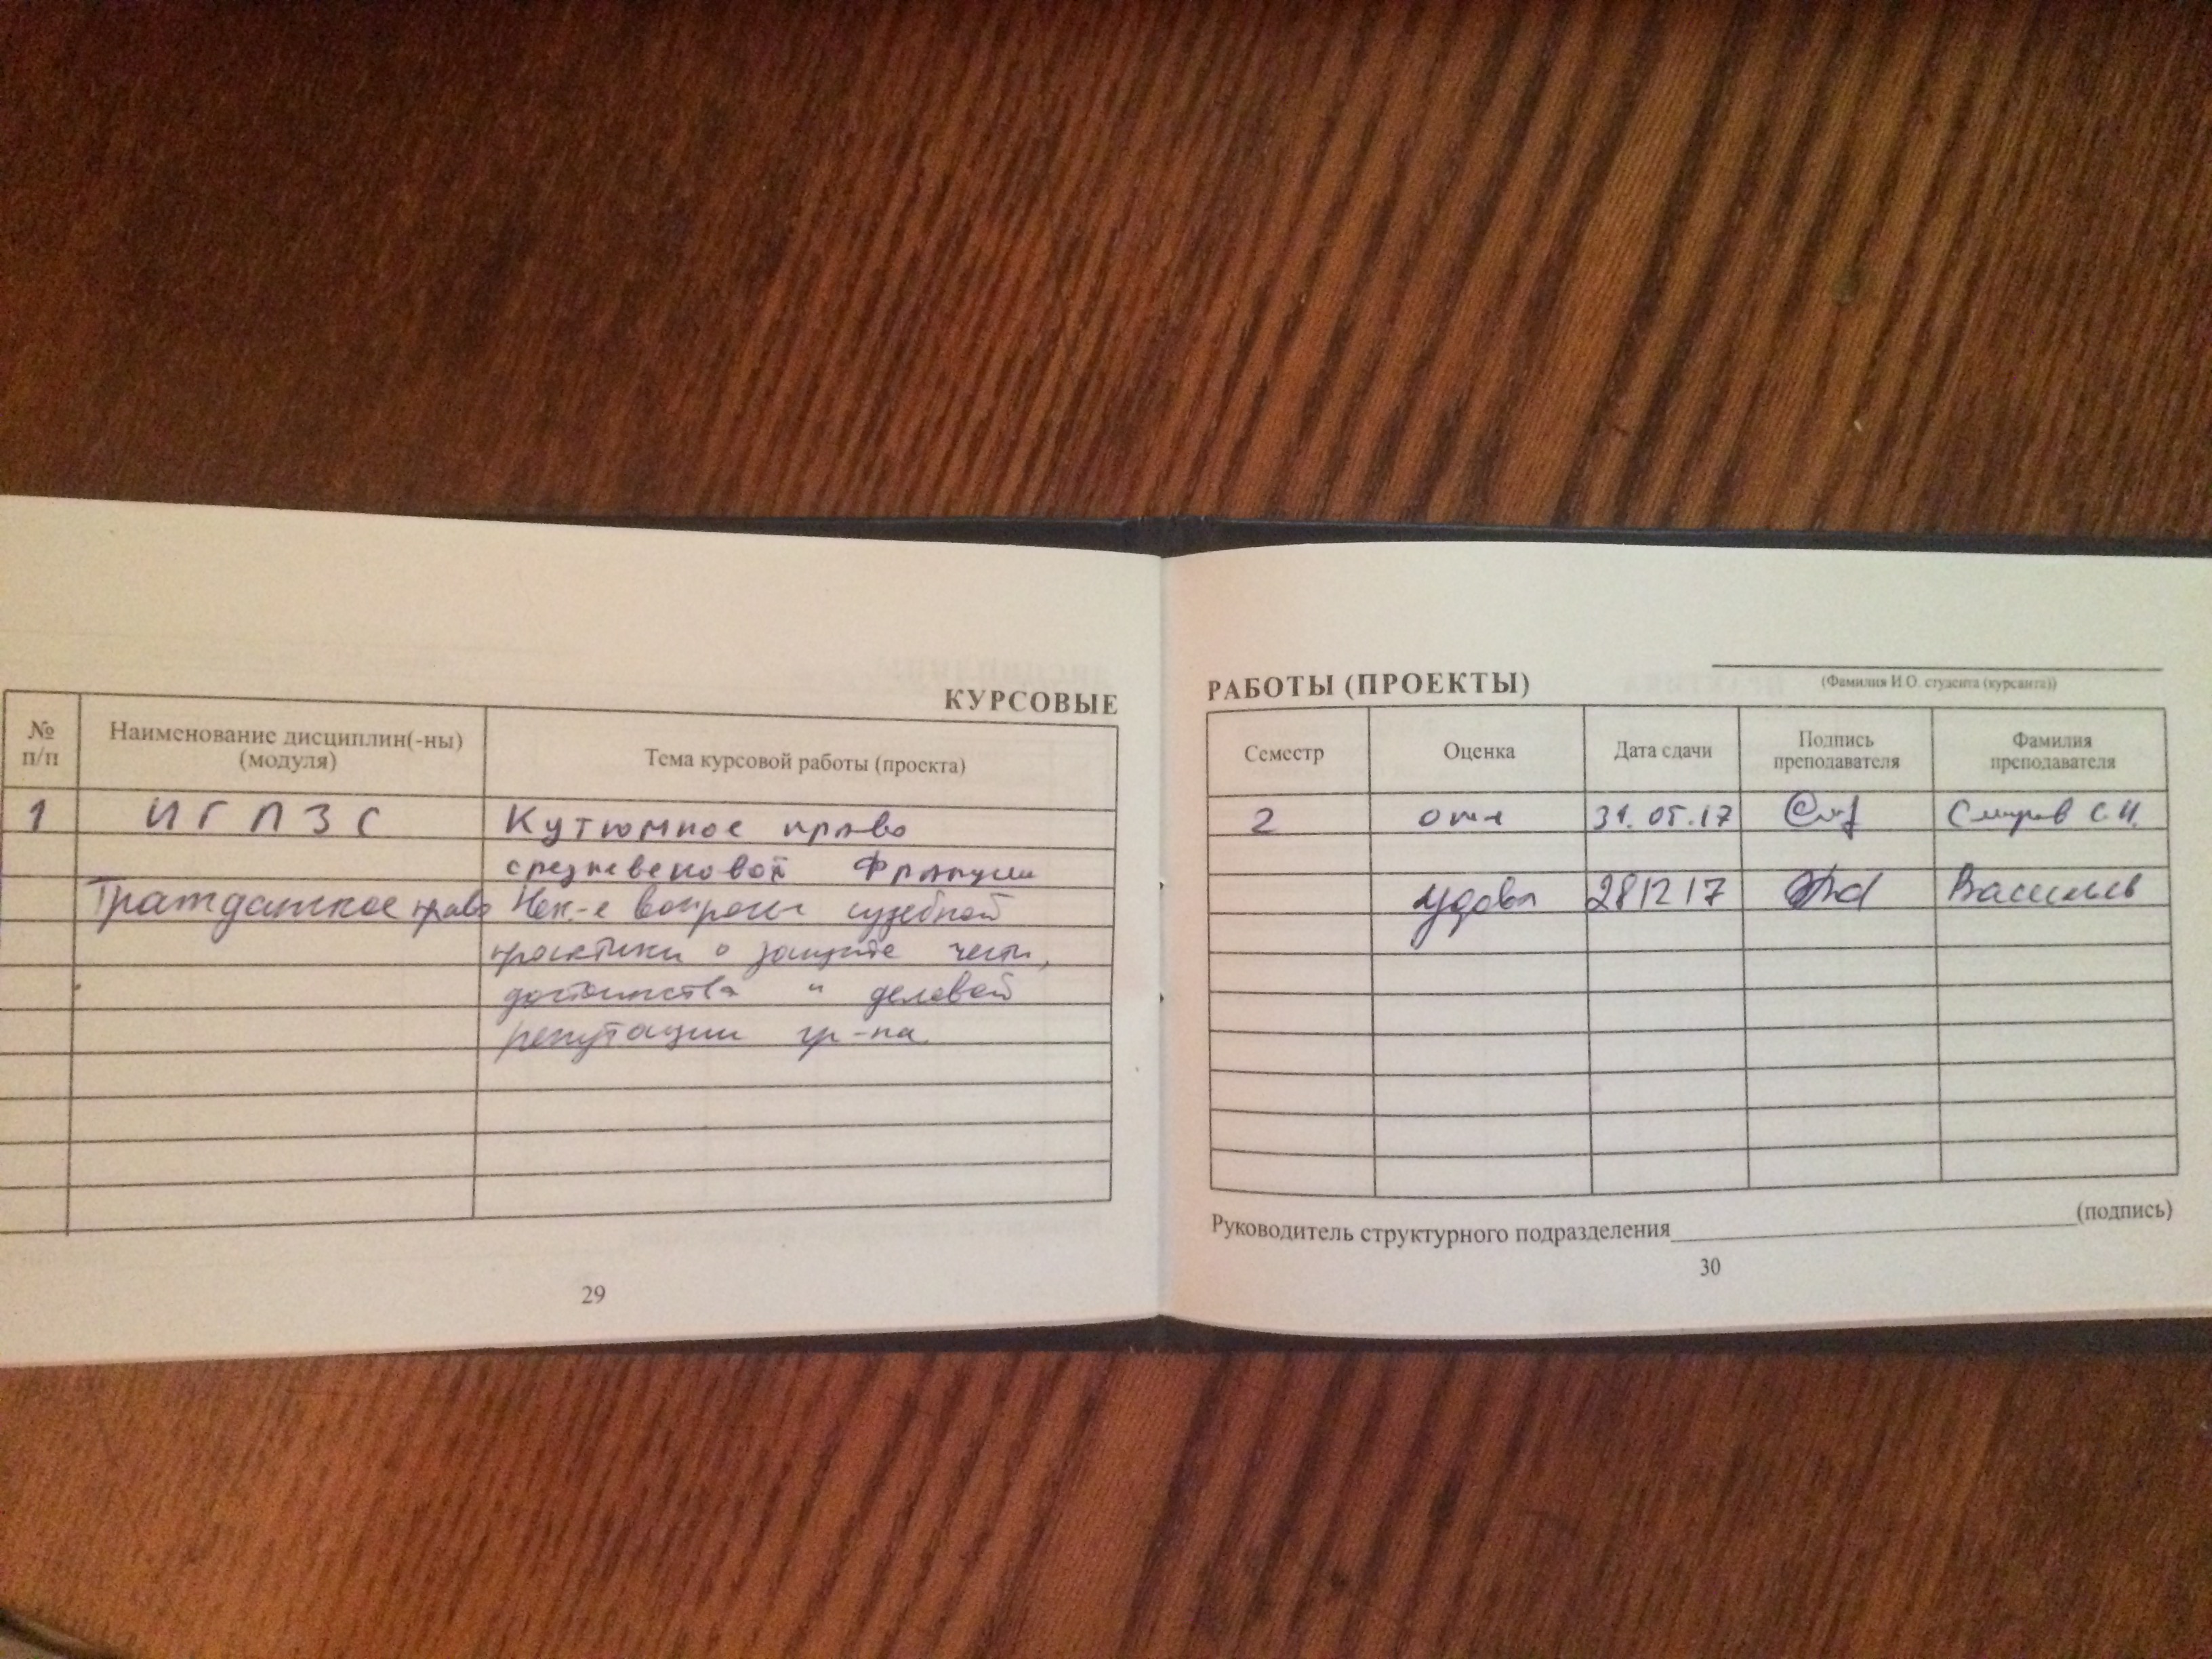 КУРСОВЫЕ
№ п/п
Наименование дисциплин(-ны) (модуля)
Тема курсовой работы (проекта)
1 ИГПЗС Кутюмное право
средневековой Франции
Гражданское право Нек-е вопросы судебной
практики о защите чести,
достоинства и деловой
репутации гр-на
29
РАБОТЫ (ПРОЕКТЫ)
(Фамилия И.О. студента (курсанта))
Семестр
Оценка
Дата сдачи
Подпись преподавателя
Фамилия преподавателя
2 отл 31.05.17 С.Н.
удовл 28 12 17 Васильев
Руководитель структурного подразделения (подпись)
30